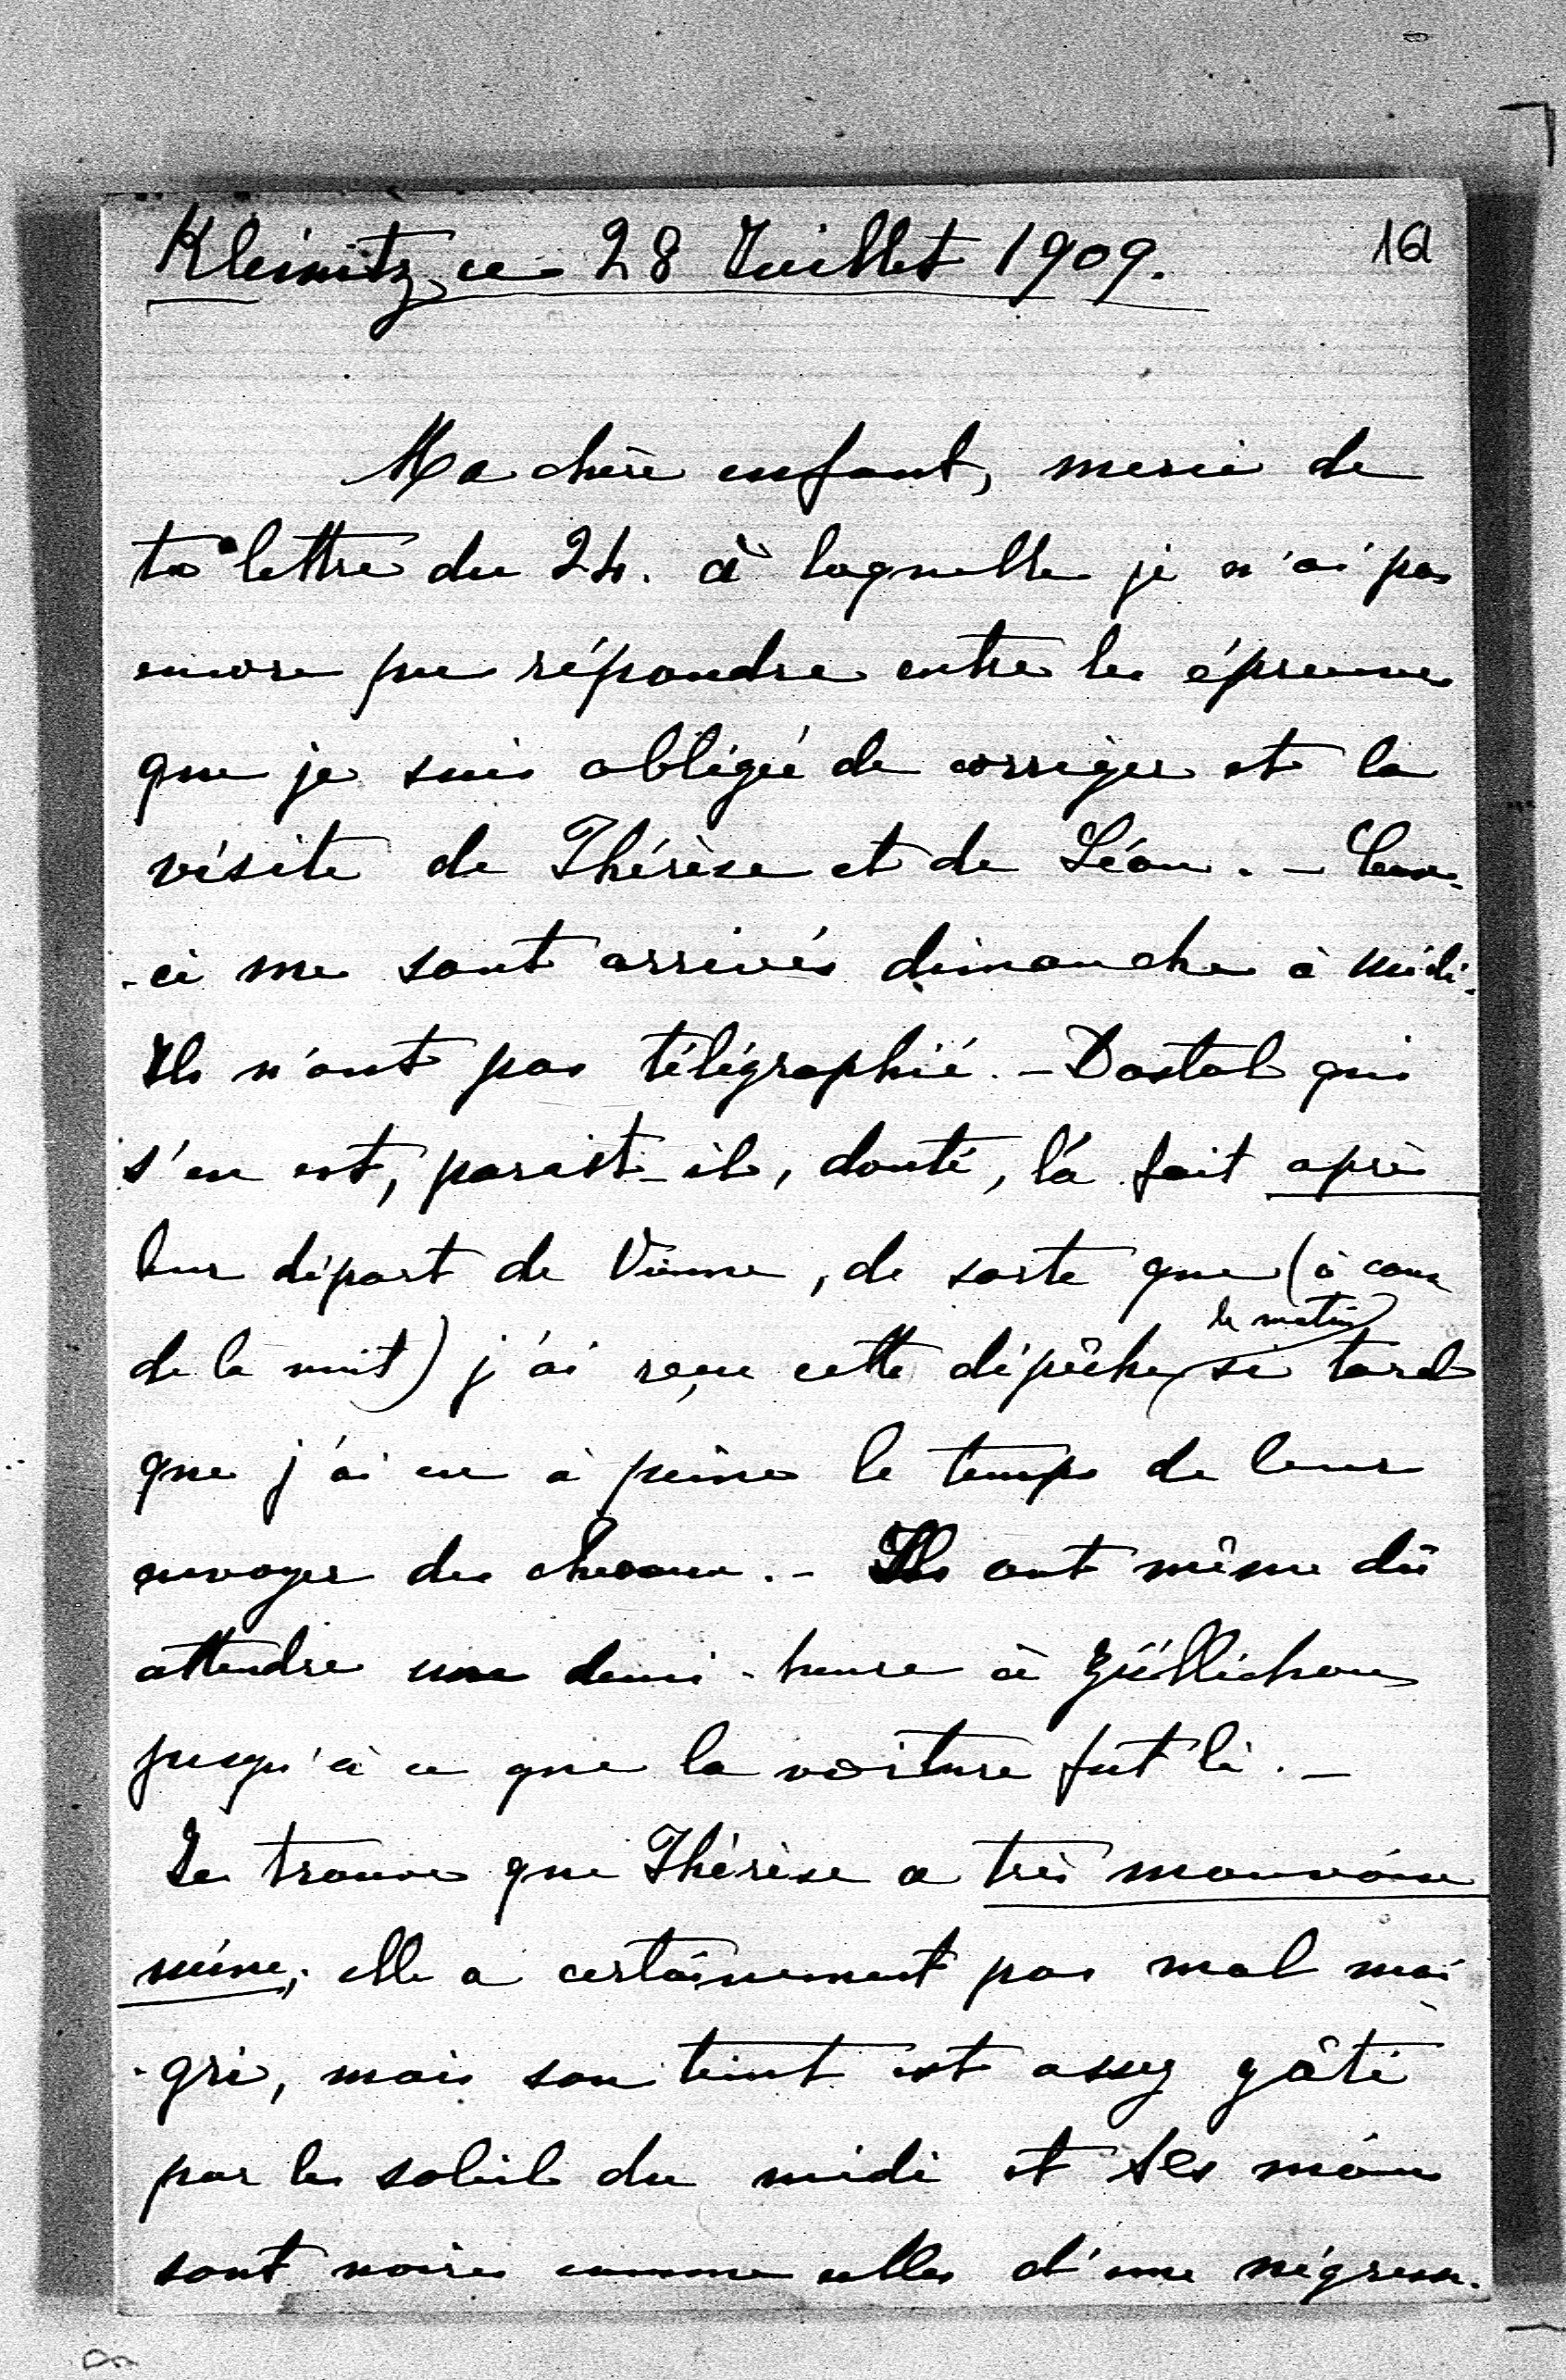 Kleinitz, ce 28 Juillet 1909.
161
Ma chère enfant, merci de
ta lettre du 24. à laquelle je n'ai pas
encore pu répondre entre les épreuves
que je suis obligée de corriger et la
visite de Thérèse et de Léon. - Ceux-
-ci me sont arrivés dimanche à midi.
Ils n'ont pas télégraphié. - Dostal qui
s'en est, parait-il, douté, l'a fait après
leur départ de Vienne, de sorte que (à cause
de la nuit) j'ai reçu cette dépêche le matin si tard
que j'ai eu à peine le temps de leur
envoyer des chevaux. - Ils ont même dû
attendre une demi-heure à Züllichau
jusqu'à ce que la voiture fut là. -
Je trouve que Thérèse a très mauvaise
mine; elle a certainement pas mal mai
-gri, mais son teint est assez gâté
par le soleil du midi et ses mains
sont noires comme celles d'une négresse.